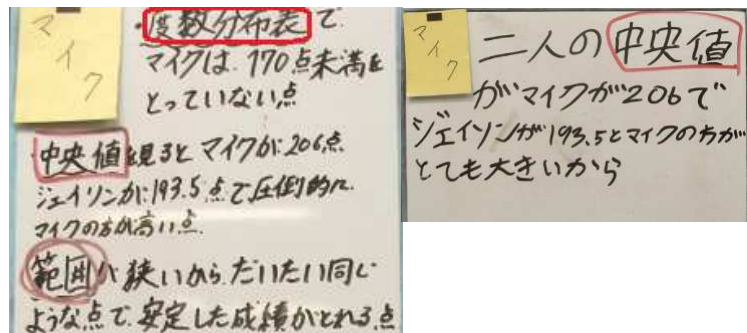 マイク
・度数分布表で
マイクは、170点未満を
とっていない点
・中央値を見るとマイクが206点
ジェイソンが193.5点で圧倒的に
マイクの方が高い点
範囲が狭いからだいたい同じ
ような点で安定した成績がとれる点
マイク
二人の中央値
がマイクが206で
ジェイソンが193.5とマイクの方が
とても大きいから